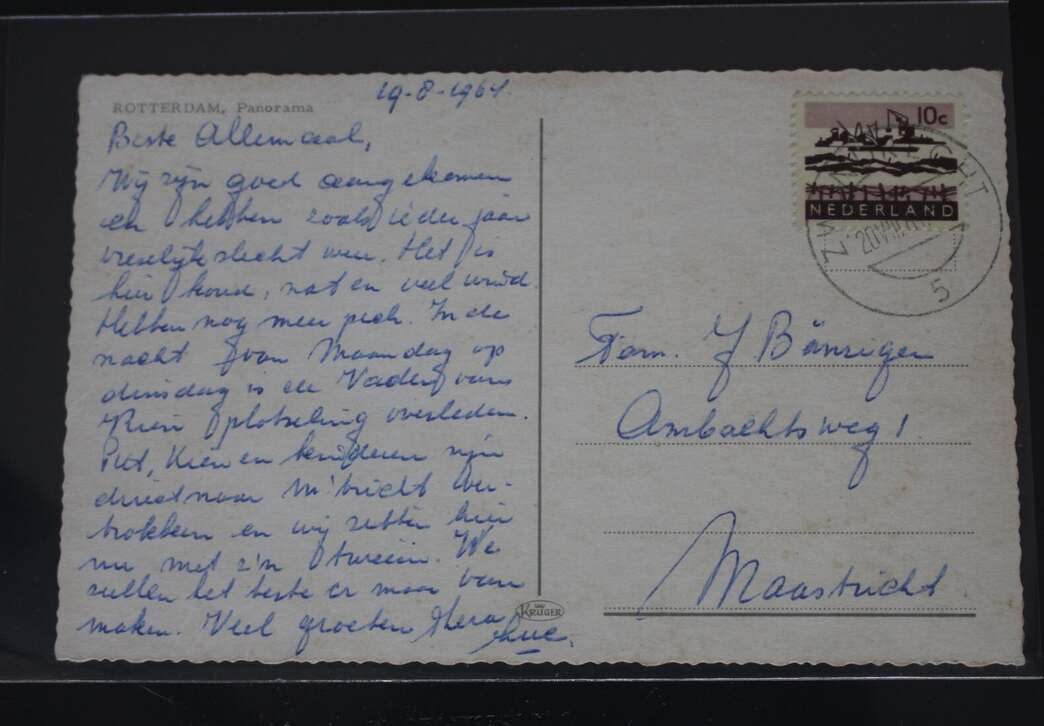 ROTTERDAM, Panorama
19-8-1964
Beste Allemaal,
Wij zijn goed aangekomen
en hebben zoals ieder jaar
vreselijk slecht weer. Het is
hier koud, nat en veel wind.
Hebben nog meer pech. In de
nacht van Maandag op
dinsdag is de Vader van
Rien plotseling overleden.
Piet, Rien en kinderen zijn
direct naar M'tricht ver-
trokken en wij zitten hier
nu met z'n tweeën. We
zullen het beste er maar van
maken. Veel groeten Hera
Luc.
KRÜGER
10c
NEDERLAND
5
Fam. J Bänziger
Ambachtsweg 1
Maastricht